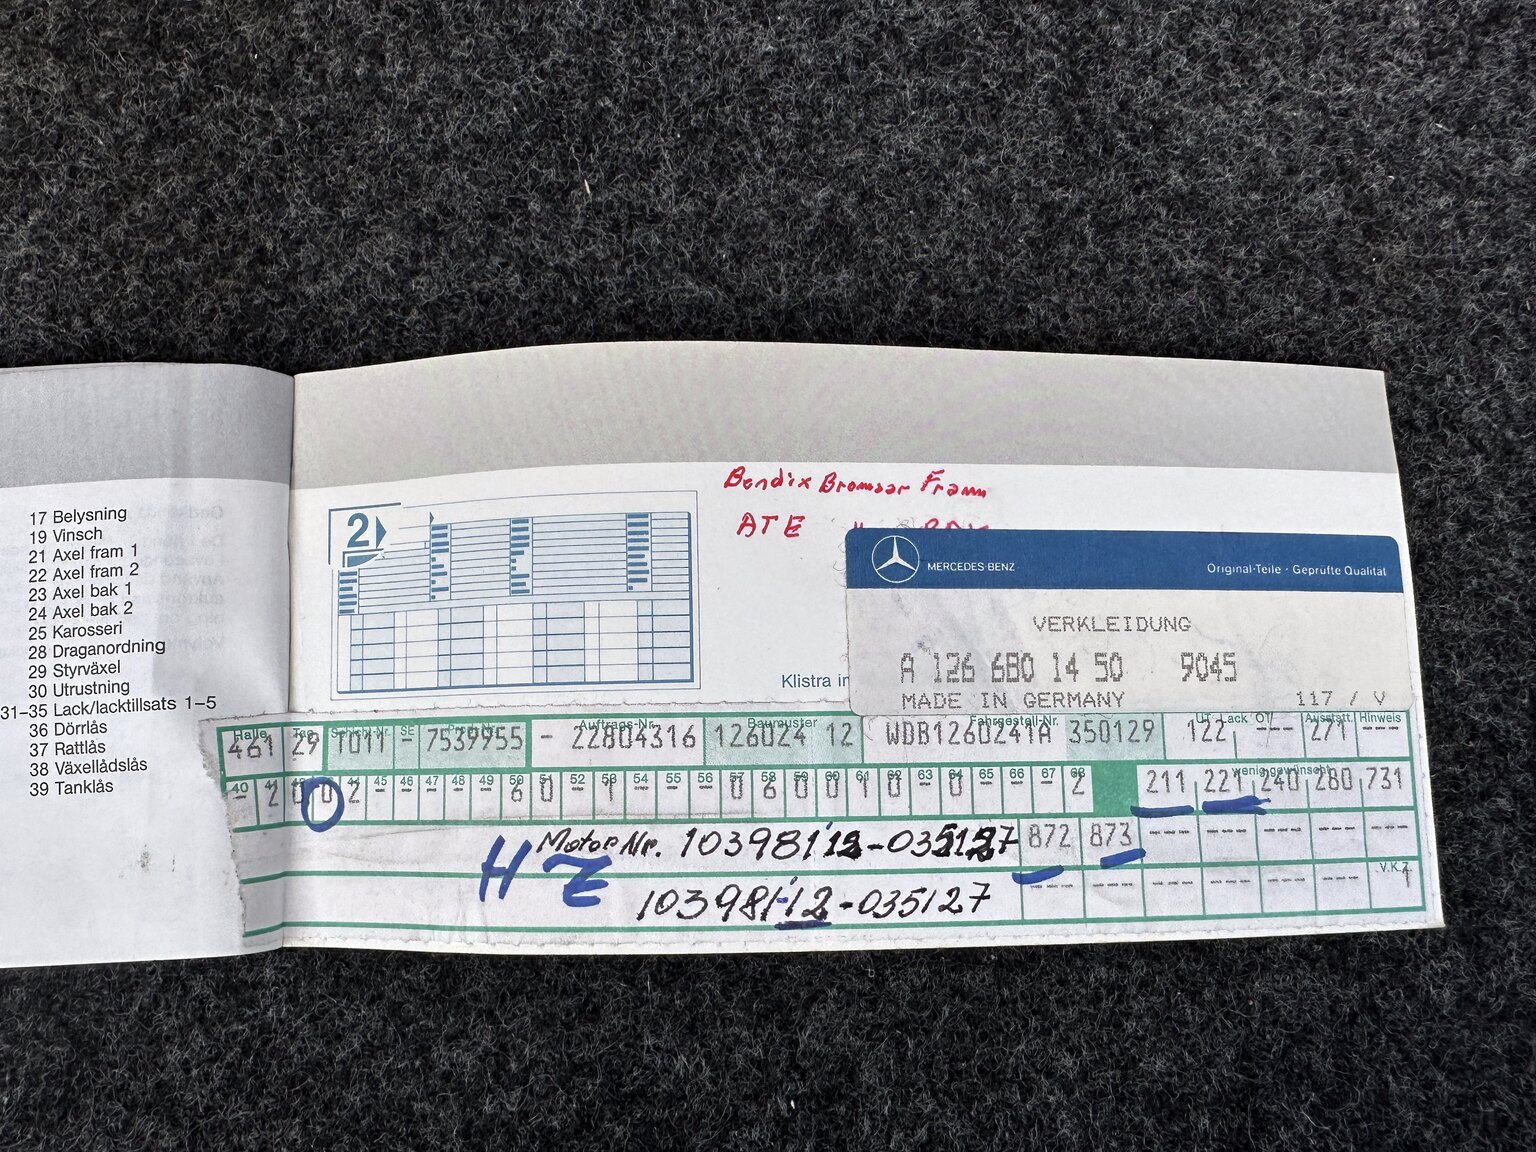 17 Belysning
19 Vinsch
21 Axel fram 1
22 Axel fram 2
23 Axel bak 1
24 Axel bak 2
25 Karosseri
28 Draganordning
29 Styrväxel
30 Utrustning
31–35 Lack/lacktillsats 1–5
36 Dörrlås
37 Rattlås
38 Växellådslås
39 Tanklås
2
Bendix Bromsar Fram
ATE
MERCEDES-BENZ
Original-Teile · Geprüfte Qualität
VERKLEIDUNG
A 126 680 14 50 9045
MADE IN GERMANY 117 / V
Klistra in
Halle Tag SE Auftrags-Nr. Baumuster Fahrgestell-Nr. Lack Ausstatt. Hinweis
461 29 1011 - 7539955 - 22804316 126024 12 WDB1260241A 350129 122 --- 271 ---
40 41 44 45 46 47 48 49 50 51 52 53 54 55 56 57 58 59 60 61 62 63 64 65 66 67 68 wenig gewünscht
- 2 0 0 2 - - - - - 6 0 - 1 - - - 0 6 0 0 1 0 - 0 - - 2 211 221 240 280 731
HZ
Motor Nr. 103981 12-035127 872 873 --- --- --- --- ---
V.K.Z
103981-12-035127 --- --- --- --- --- --- 1